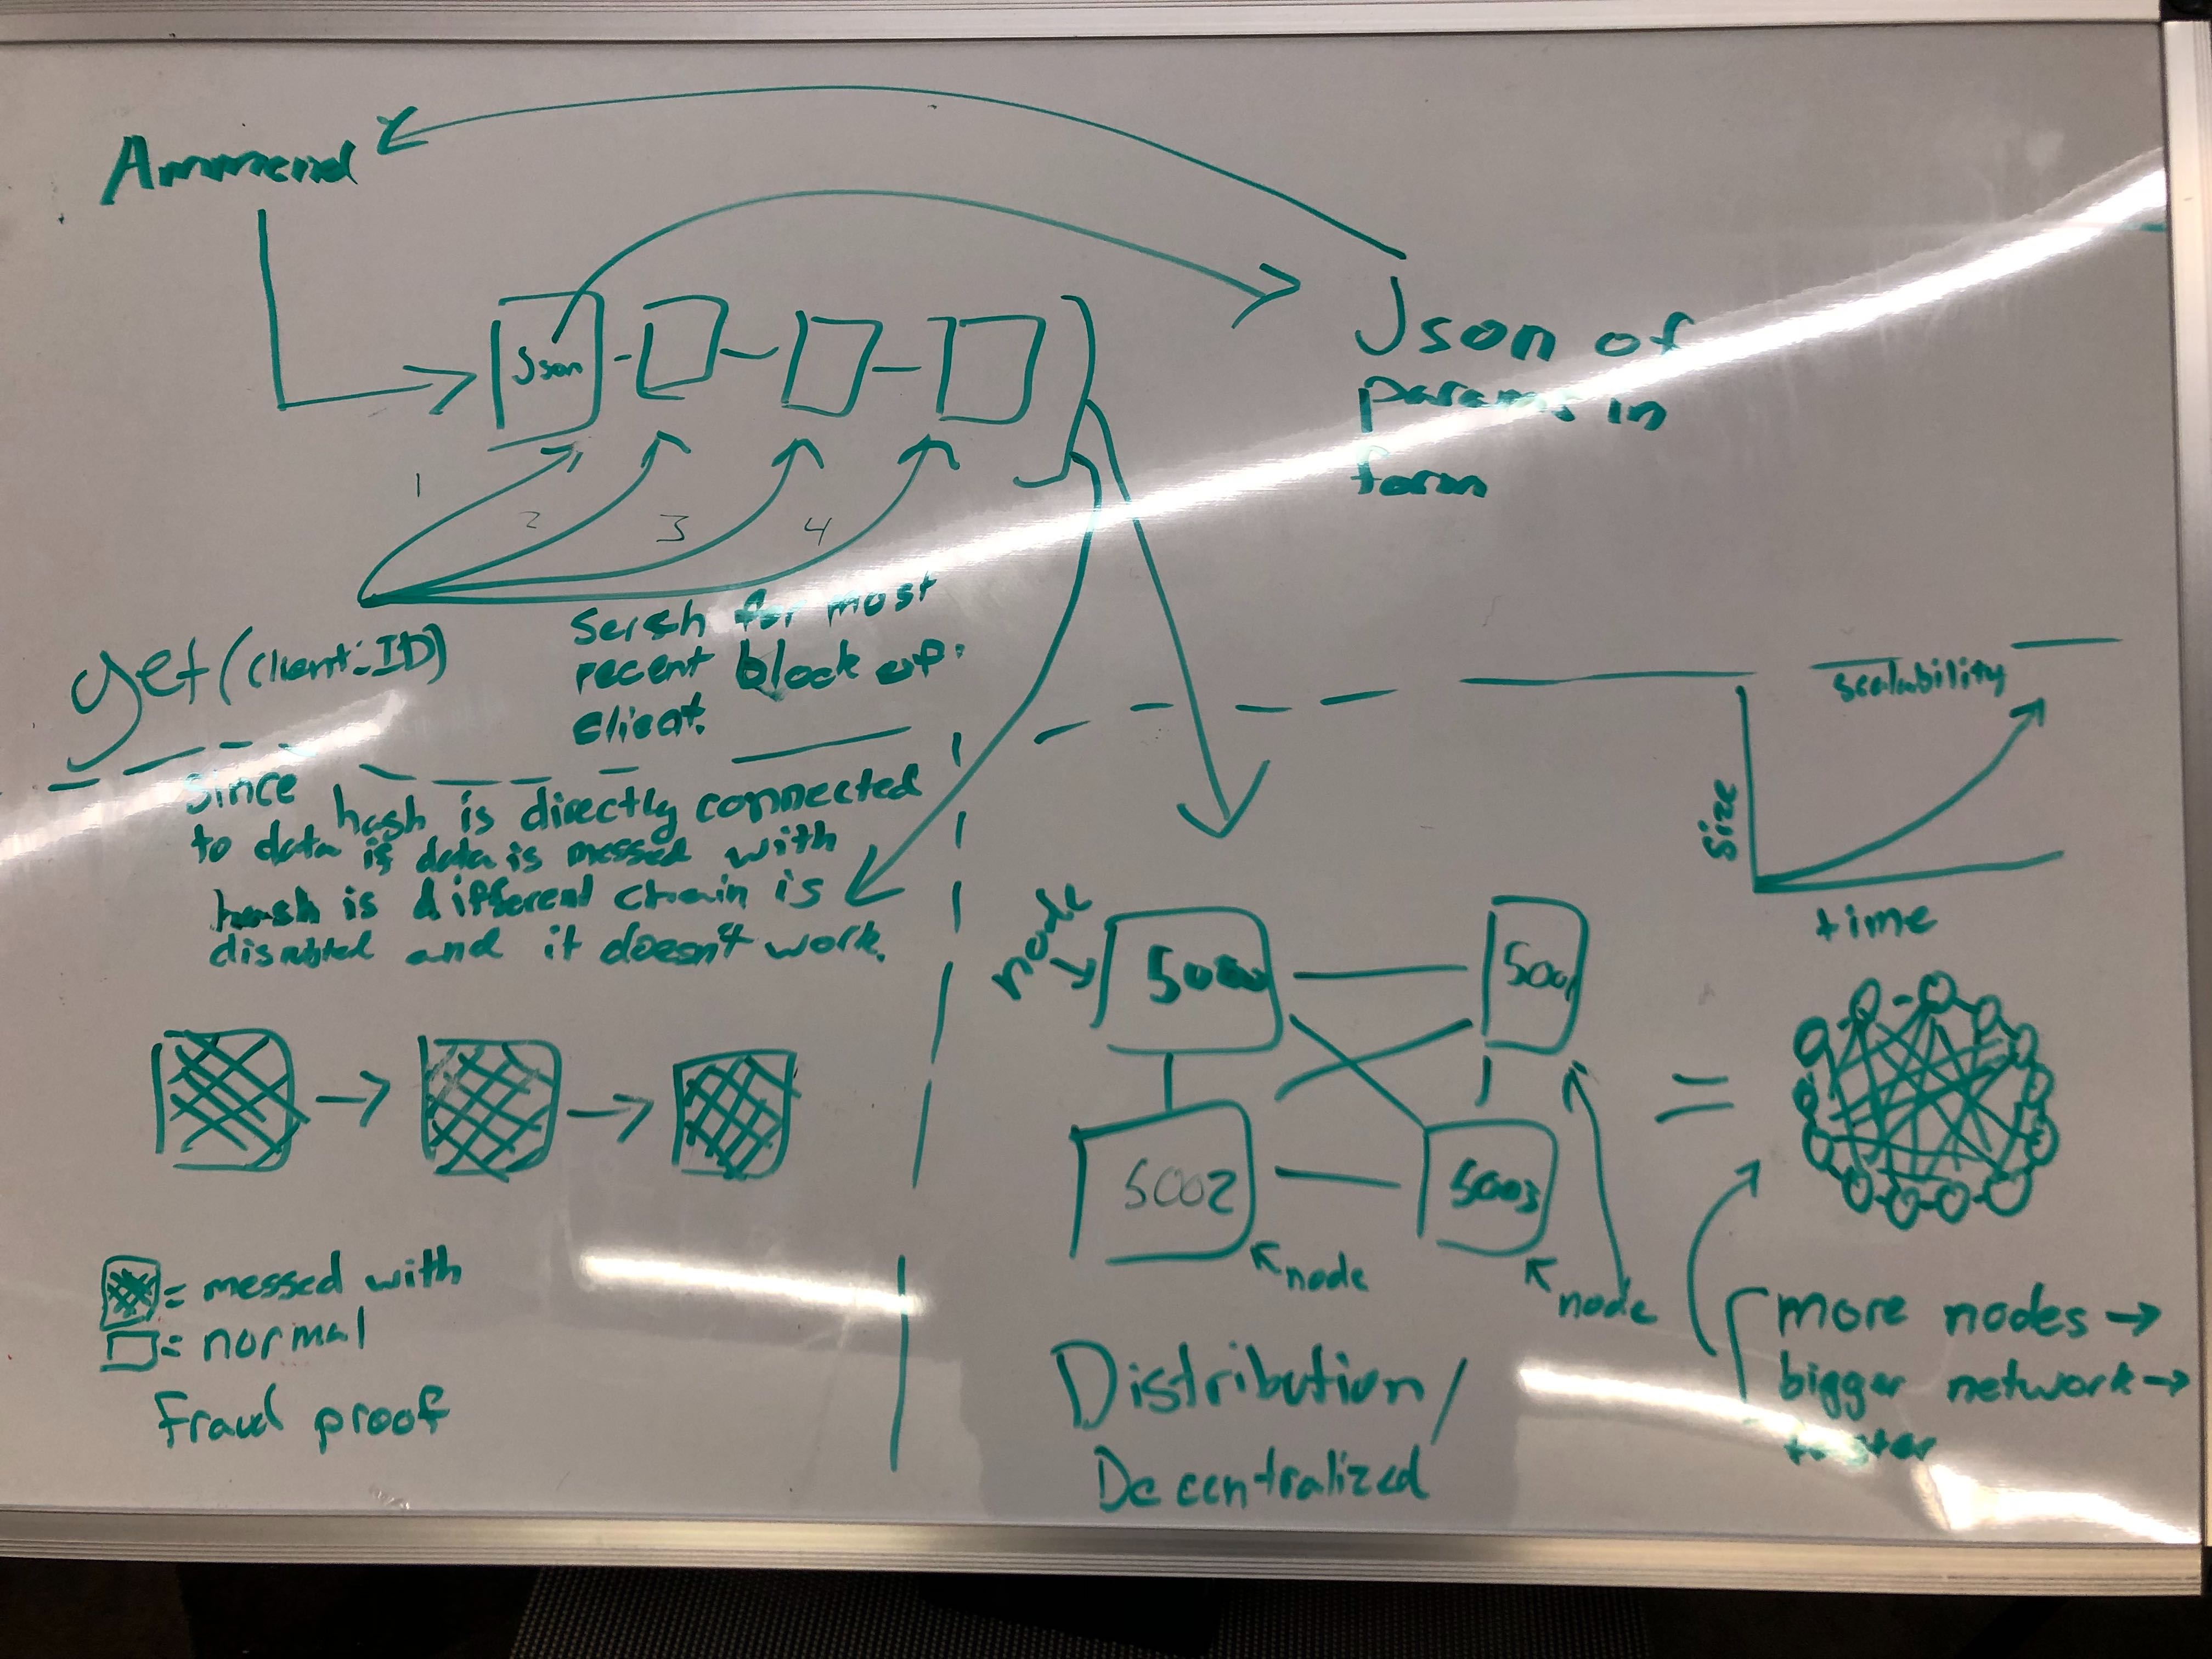 Ammend
Json
Json of
params in
form
1
2
3
4
get(client:ID)
Serch for most
recent block of
client.
scalability
size
time
since hash is directly connected
to data if data is messed with
hash is different chain is
and it doesn't work.
node
5000
5001
5002
5003
node
node
= messed with
= normal
Fraud proof
=
more nodes →
bigger network →
faster
Distribution/
Decentralized